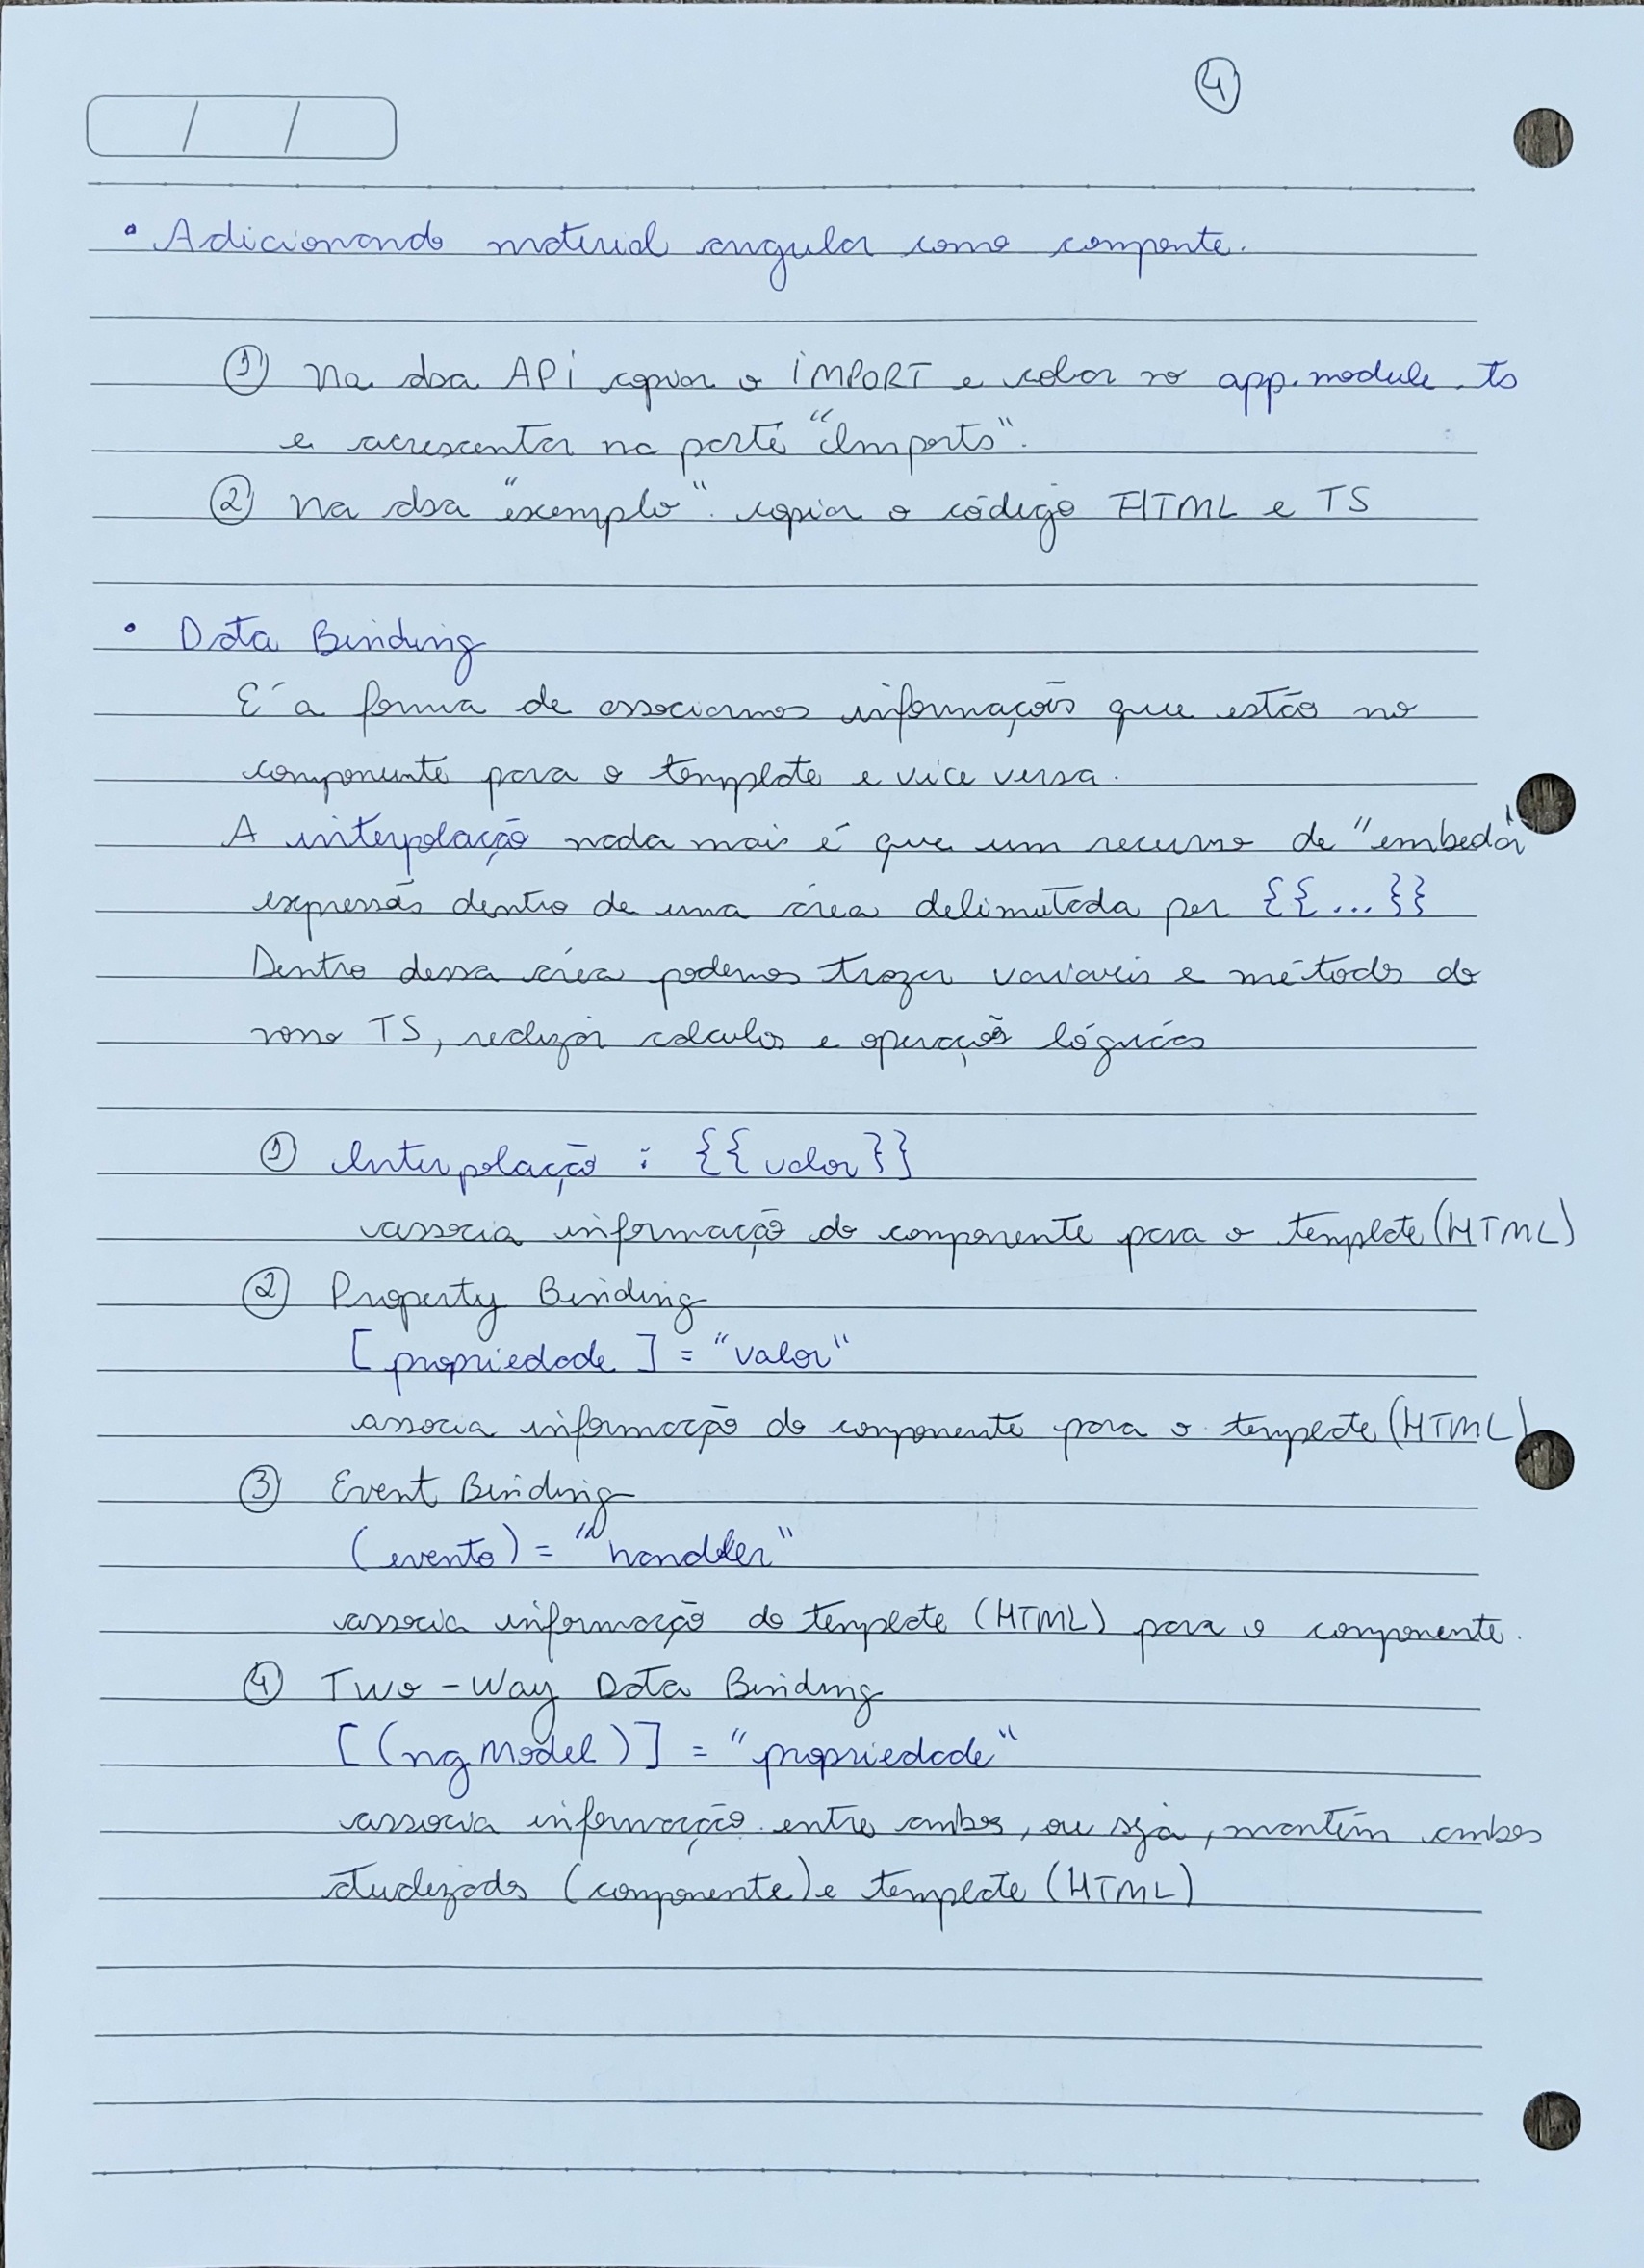 4
/ /
• Adicionando material angular como compente.
① Na aba API copiar o IMPORT e colar no app.module.ts
e acrescentar na parte "Imports".
② Na aba "exemplo" copiar o código HTML e TS
• Data Binding
É a forma de associarmos informações que estão no
componente para o template e vice versa.
A interpolação nada mais é que um recurso de "embedar"
expressões dentro de uma área delimitada por {{...}}
Dentro dessa área podemos trazer variaveis e métodos do
nosso TS, realizar calculos e operações lógicas
① Interpolação : {{valor}}
associa informação do componente para o template (HTML)
② Property Binding
[propriedade] = "valor"
associa informação do componente para o template (HTML)
③ Event Binding
(evento) = "handler"
associa informação do template (HTML) para o componente.
④ Two-Way Data Binding
[(ngModel)] = "propriedade"
associa informação entre ambos, ou seja, mantém ambos
atualizados (componente) e template (HTML)